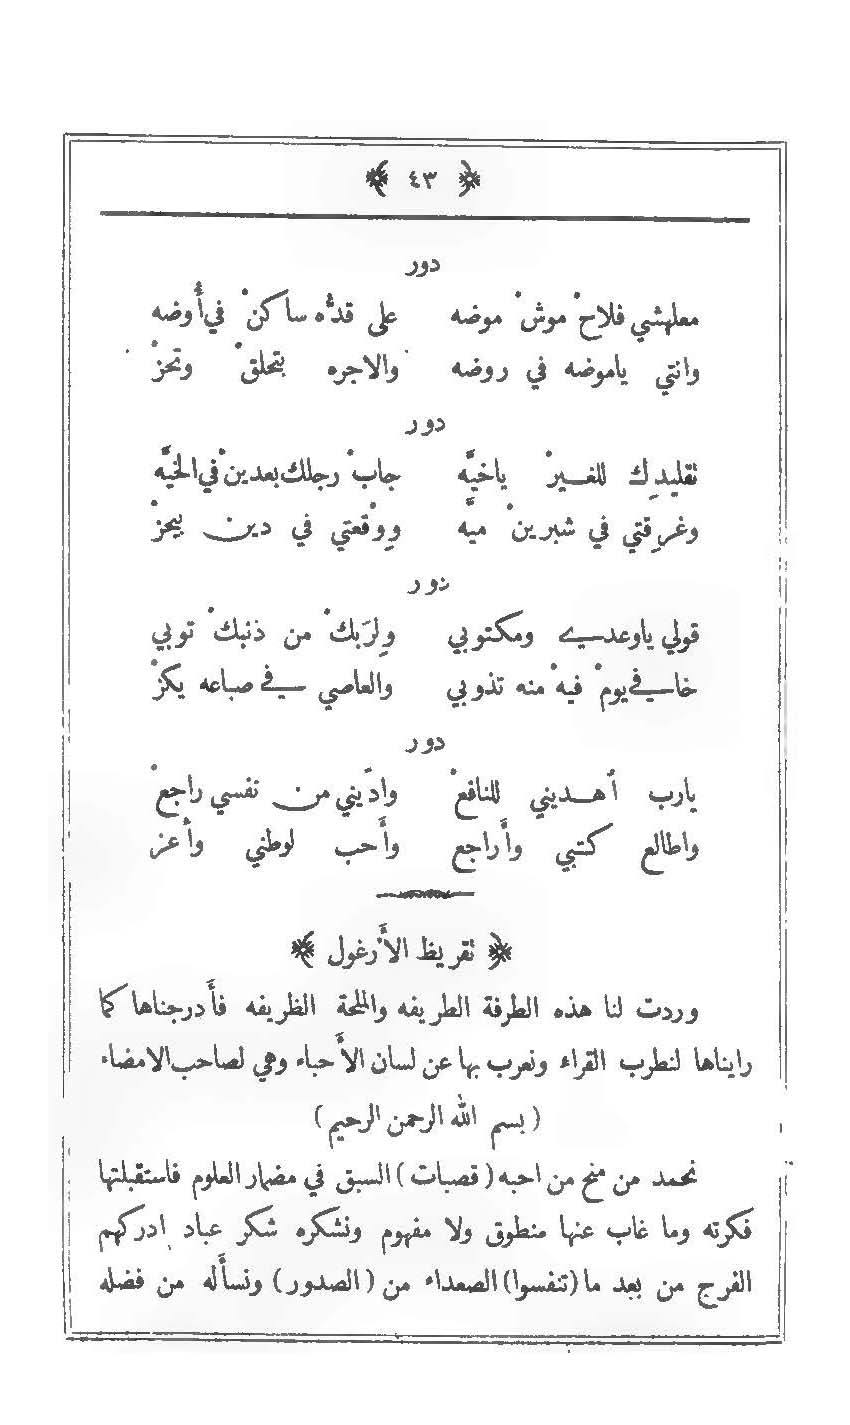 ﴿ ٤٣ ﴾
دور
معلهشي فلاحْ موشْ موضه على قدُّه ساكنْ في أُوضه
وانتي ياموضه في روضه والاجره بتحلقْ وتحزْ
دور
نقليدِك للغيرْ ياخيَّه جابْ رجلك بعدينْ في الخيَّه
وغرِقتي في شبرينْ ميَّه وِوْقعتي في دين بيحزْ
دور
قولي ياوعدي ومكتوبي ولِرَبكْ من ذنبكْ توبي
خافي يومْ فيهْ منه تذوبي والعاصي في صباعه يكزْ
دور
يارب أهديني للنافعْ وادّيني من نفسي راجعْ
واطالع كتبي وأراجع وأحب لوطني وأعز
﴿ نقريظ الأرغول ﴾
وردت لنا هذه الطرفة الطريفه والملحة الظريفه فأدرجناها كما
رايناها لنطرب القراء ونعرب بها عن لسان الأحباء وهي لصاحب الامضاء
( بسم الله الرحمن الرحيم )
نحمد من منح من احبه ( قصبات ) السبق في مضمار العلوم فاستقبلتها
فكرته وما غاب عنها منطوق ولا مفهوم ونشكره شكر عباد ادركهم
الفرج من بعد ما (تنفسوا) الصعداء من ( الصدور ) ونسأله من فضله